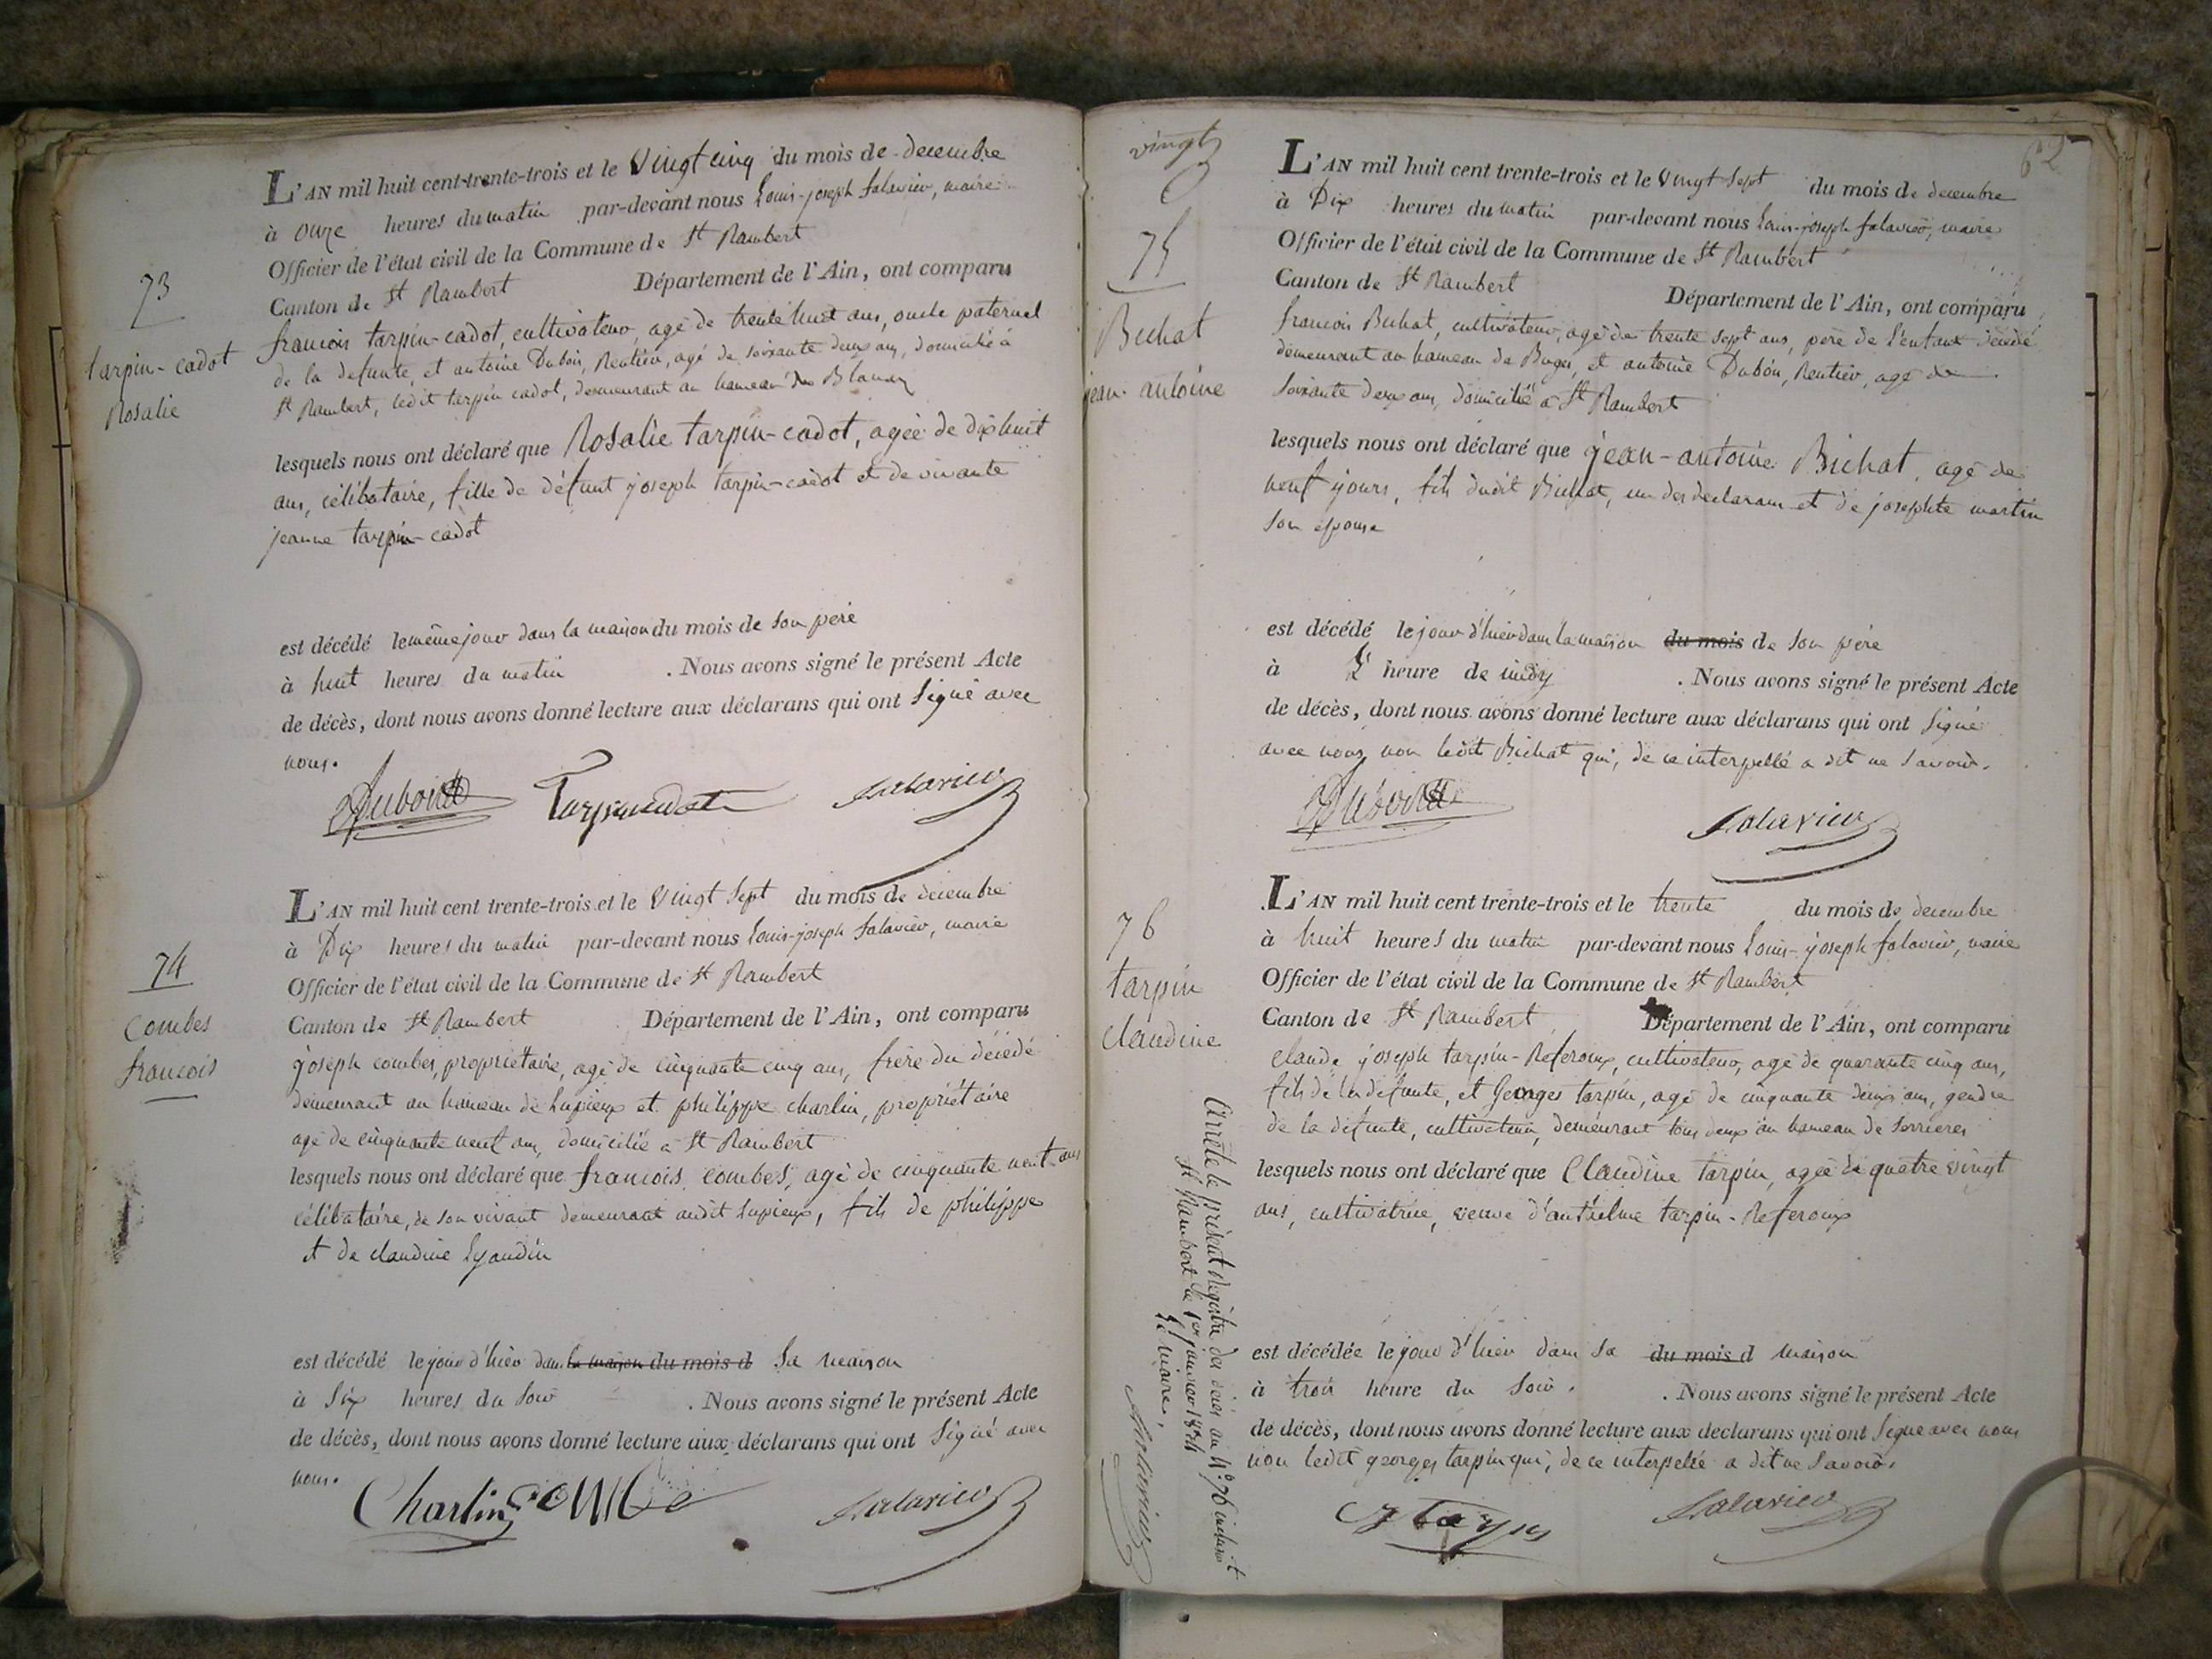 73
tarpin-cadot
Rosalie
L'AN mil huit cent-trente-trois et le Vingt cinq du mois de decembre
à onze heures du matin par-devant nous Louis-joseph Salavier, maire
Officier de l'état civil de la Commune de St Rambert
Canton de St Rambert Département de l'Ain, ont comparu
francois tarpin-cadot, cultivateur, agé de trente huit ans, oncle paternel
de la defunte, et antoine Dubois, Rentier, agé de soixante deux ans, domicilié à
St Rambert, ledit tarpin cadot, demeurant au hameau du Blanay
lesquels nous ont déclaré que Rosalie tarpin-cadot, agée de dix huit
ans, célibataire, fille de défunt joseph tarpin-cadot et de vivante
jeanne tarpin-cadot
est décédé le même jour dans la maison du mois de son pere
à huit heures du matin . Nous avons signé le présent Acte
de décès, dont nous avons donné lecture aux déclarans qui ont signé avec
nous.
Dubois Tarpincadot Salavier
74
Combes
francois
L'AN mil huit cent trente-trois et le Vingt Sept du mois de decembre
à Dix heures du matin par-devant nous Louis-joseph Salavier, maire
Officier de l'état civil de la Commune de St Rambert
Canton de St Rambert Département de l'Ain, ont comparu
joseph combes, propriétaire, agé de cinquante cinq ans, frère du décédé
demeurant au hameau de Lupieux et philippe charlin, propriétaire
agé de cinquante neuf ans, domicilié à St Rambert
lesquels nous ont déclaré que francois combes, agé de cinquante neuf ans
célibataire, de son vivant demeurant audit Lupieux, fils de philippe
et de claudine Lyaudin
est décédé le jour d'hier dans la maison du mois d Sa maison
à Six heures du soir . Nous avons signé le présent Acte
de décès, dont nous avons donné lecture aux déclarans qui ont signé avec
nous.
Charlin Combe Salavier
vingt
62
75
Bichat
jean-antoine
L'AN mil huit cent trente-trois et le Vingt Sept du mois de decembre
à Dix heures du matin par-devant nous Louis-joseph Salavier, maire
Officier de l'état civil de la Commune de St Rambert
Canton de St Rambert Département de l'Ain, ont comparu
francois Bichat, cultivateur, agé de trente sept ans, père de l'enfant décédé
demeurant au hameau de Buges, et antoine Dubois, Rentier, agé de
soixante deux ans, domicilié à St Rambert
lesquels nous ont déclaré que jean-antoine Bichat, agé de
neuf jours, fils dudit Bichat, un des declarans et de josephte martin
son épouse
est décédé le jour d'hier dans la maison du mois de son père
à l' heure de midy . Nous avons signé le présent Acte
de décès, dont nous avons donné lecture aux déclarans qui ont signé
avec nous, non ledit Bichat qui, de ce interpellé a dit ne savoir.
Dubois Salavier
76
tarpin
claudine
L'AN mil huit cent trente-trois et le trente du mois de decembre
à huit heures du matin par-devant nous Louis-joseph Salavier, maire
Officier de l'état civil de la Commune de St Rambert
Canton de St Rambert Département de l'Ain, ont comparu
claude joseph tarpin-Referoux, cultivateur, agé de quarante cinq ans,
fils de la défunte, et Georges tarpin, agé de cinquante deux ans, gendre
de la défunte, cultivateur, demeurant tous deux au hameau de Serrieres
lesquels nous ont déclaré que Claudine tarpin, agée de quatre vingt
ans, cultivatrice, veuve d'anthelme tarpin-Referoux
est décédée le jour d'hier dans sa du mois d maison
à trois heure du soir. . Nous avons signé le présent Acte
de décès, dont nous avons donné lecture aux declarans qui ont signé avec nous
non ledit georges tarpin qui, de ce interpellé a dit ne savoir.
Salavier
Arrêté le présent registre des décès au N° 76 inclusivt
St Rambert le 1er janvier 1834
Le maire,
Salavier